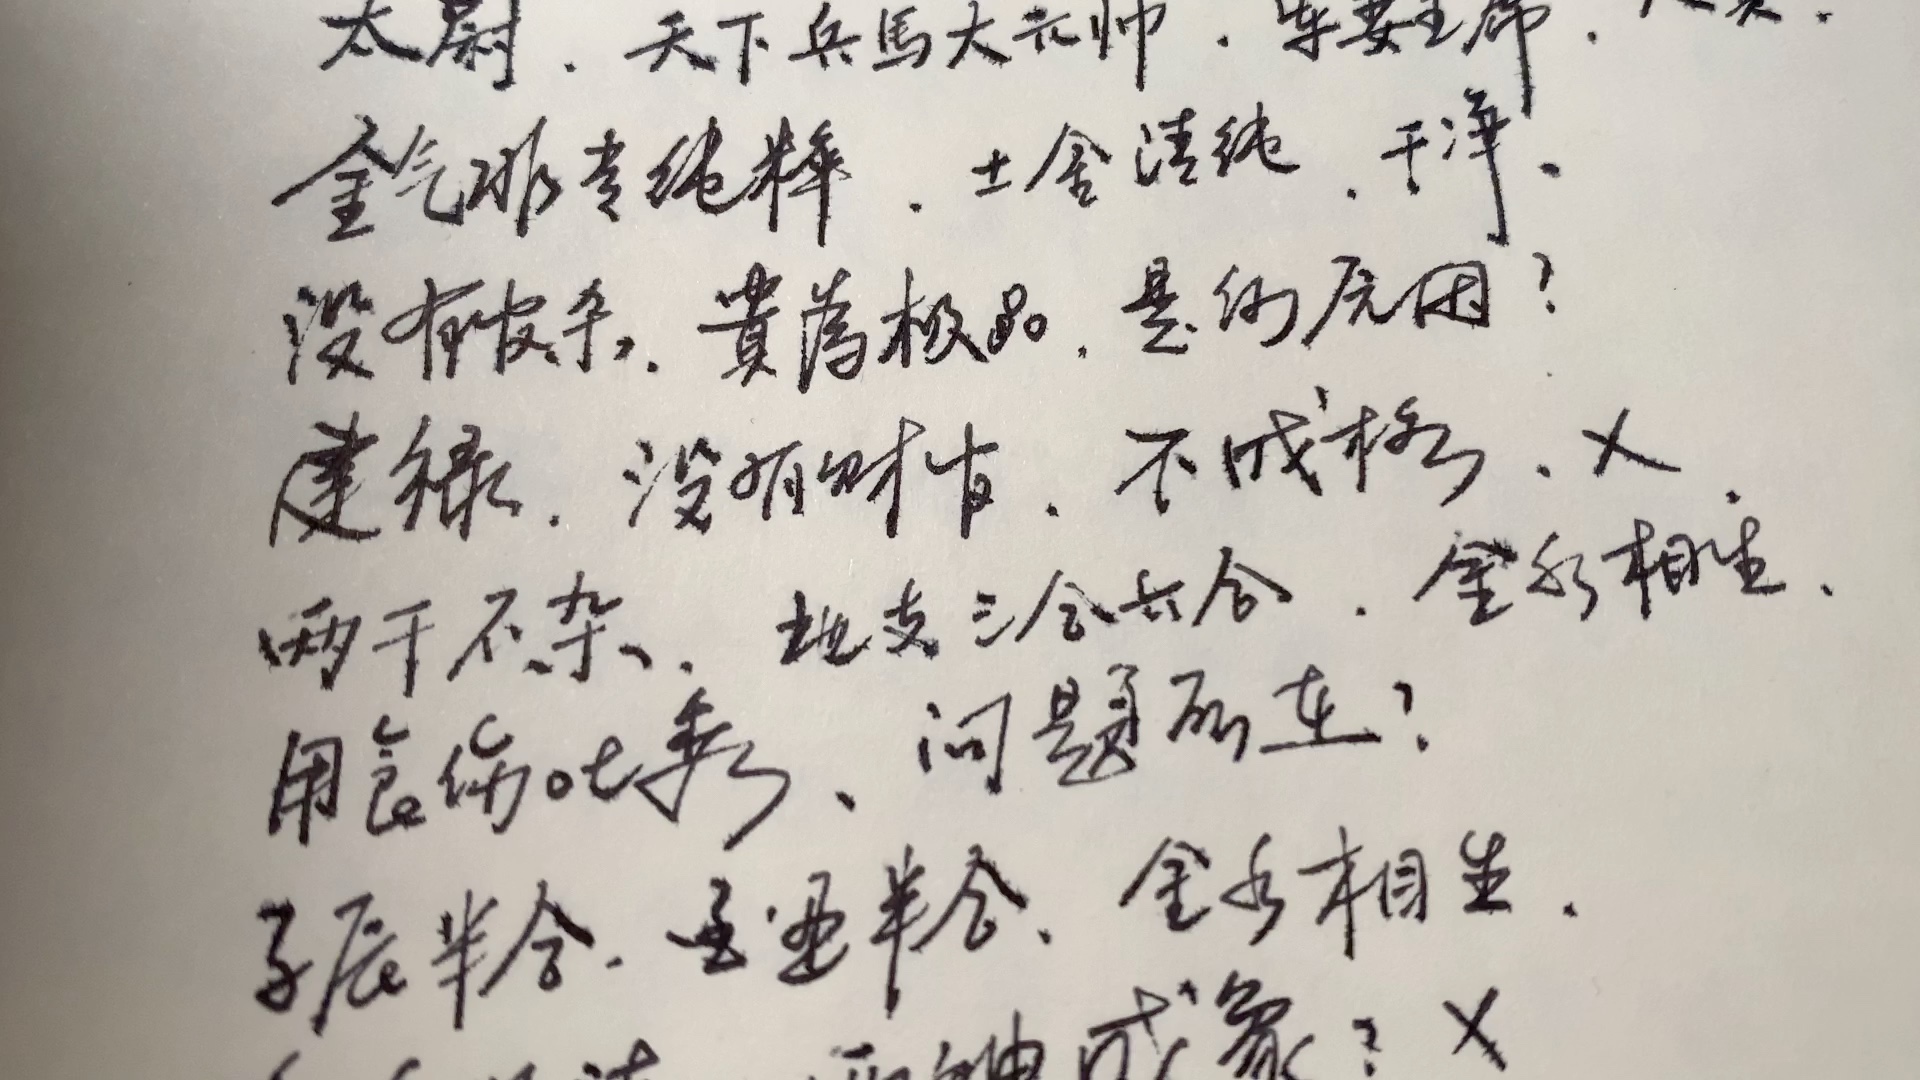 太尉. 天下兵馬大元帅. 军委主席.
金气非常纯粹. 土金清纯. 干净.
没有破杀. 貴為极品. 是何原因?
建禄. 没有财官. 不成格. X.
两干不杂. 地支三合六合. 金水相生.
用食伤吐秀、问题所在?
子辰半合. 丑半合. 金水相生.
成象? X